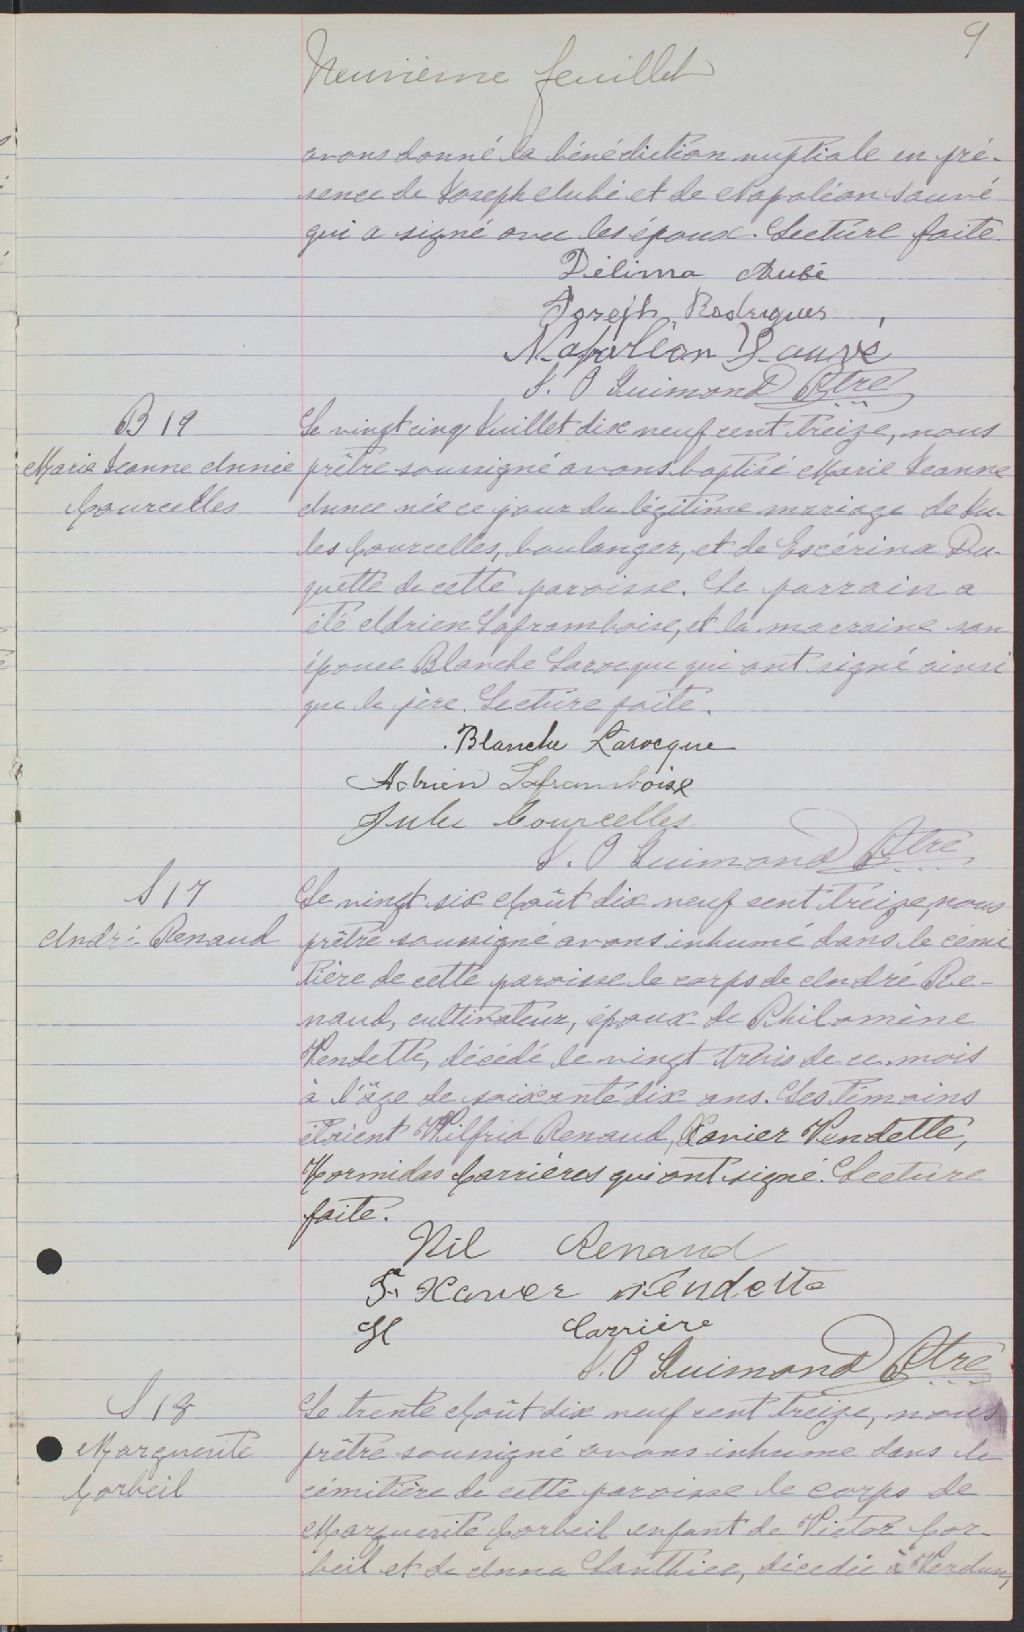 9
Neuvième feuillet
avons donné la bénédiction nuptiale en pré-
sence de Joseph Aubé et de Napoléon Sauvé
qui a signé avec les époux. Lecture faite.
Délima Aubé
Joseph Rodrigues
Napoléon Sauvé
J. O Guimond Ptre
B 19
Marie Jeanne Année
Courcelles
Le vingt cinq Juillet dix neuf cent treize, nous
prêtre soussigné avons baptisé Marie Jeanne
Annee née ce jour du légitime mariage de Ju-
les Courcelles, boulanger, et de Exérina Du-
quette de cette paroisse. Le parrain a
été Adrien Laframboise, et la marraine son
épouse Blanche Larocque qui ont signé ainsi
que le père. Lecture faite.
Blanche Larocque
Adrien Laframboise
Jules Courcelles
J. O Guimond Ptre
S 17
André Renaud
Le vingt six Août dix neuf cent treize, nous
prêtre soussigné avons inhumé dans le cémi
tière de cette paroisse le corps de André Re-
naud, cultivateur, époux de Philomène
Vendette, décédé le vingt trois de ce mois
à l'âge de soixante dix ans. Les témoins
étaient Wilfrid Renaud, Xavier Vendette,
Hormidas Carrières qui ont signé. Lecture
faite.
Wil Renaud
F. Xavier Vendette
H Carrière
J. O Guimond Ptre
S 18
Marguerite
Corbeil
Le trente Août dix neuf cent treize, nous
prêtre soussigné avons inhume dans le
cémitière de cette paroisse le corps de
Marguerite Corbeil enfant de Victor Cor-
beil et de Anna Gauthier, décédée à Verdun,